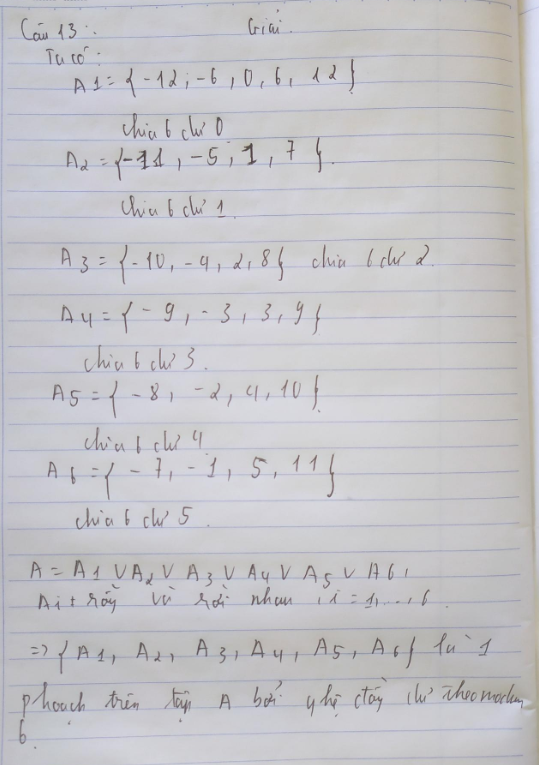 Câu 13: Giải.
Ta có:
A1 = { -12, -6, 0, 6, 12 }
chia 6 dư 0
A2 = { -11, -5, 1, 7 }.
chia 6 dư 1
A3 = { -10, -4, 2, 8 } chia 6 dư 2.
A4 = { -9, -3, 3, 9 }
chia 6 dư 3.
A5 = { -8, -2, 4, 10 }
chia 6 dư 4
A6 = { -7, -1, 5, 11 }
chia 6 dư 5.
A = A1 ∪ A2 ∪ A3 ∪ A4 ∪ A5 ∪ A6,
Ai ≠ rỗng và rời nhau, i = 1,...,6.
=> { A1, A2, A3, A4, A5, A6 } là 1
phoạch trên tập A bởi qhệ đtg dư theo modun
6.